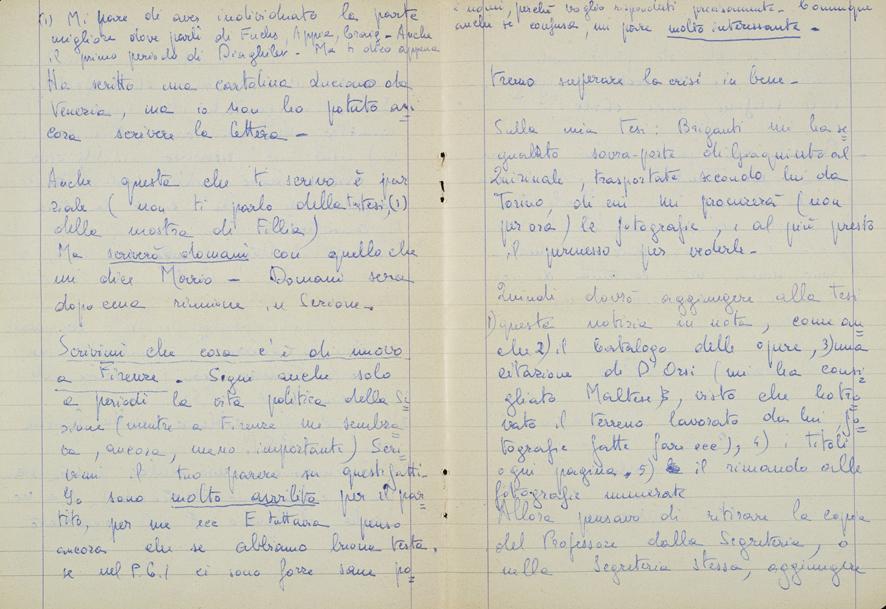 (1) Mi pare di aver individuato la parte
migliore dove parli di Fuchs, Appia, Craig - Anche
il primo periodo di Diaghilev. Ma ti dico appena
Ha scritto una cartolina Luciano da
Venezia, ma io non ho potuto an
cora scrivere la lettera -
Anche questa che ti scrivo è par
ziale (non ti parlo della tesi, (1)
della mostra di Fillia)
Ma scriverò domani con quello che
mi dice Mario - Domani sera
dopo cena riunione in Sezione.
Scrivimi che cosa c'è di nuovo
a Firenze. Segui anche solo
a periodi la vita politica della Se
zione (mentre a Firenze mi sembra
va, ancora, meno importante) Scri
vimi il tuo parere su questi fatti.
Io sono molto avvilita per il par
tito, per me ecc E tuttavia penso
ancora che se abbiamo buona testa,
se nel P.C.I ci sono forze sane po
perché voglio risponderti precisamente. Comunque
anche se confusa, mi pare molto interessante -
tremo superare la crisi in bene -
Sulla mia Tesi: Briganti mi ha se
gnalato sovra-porte di Giaquinto al
Quirinale, trasportate secondo lui da
Torino, di cui mi procurerà (non
per ora) le fotografie, e al più presto
il permesso per vederle -
Quindi dovrò aggiungere alla Tesi
1) questa notizia in nota, come an
che 2) il Catalogo delle opere, 3) una
citazione di D'Orsi (mi ha consi
gliato Maltese, visto che ho tro
vato il terreno lavorato da lui, fo
tografie fatte fare ecc), 4) i titoli
ogni pagina, 5) il rimando alle
fotografie numerate
Allora pensavo di ritirare la copia
del Professore dalla Segreteria, o
nella Segreteria stessa, aggiungere